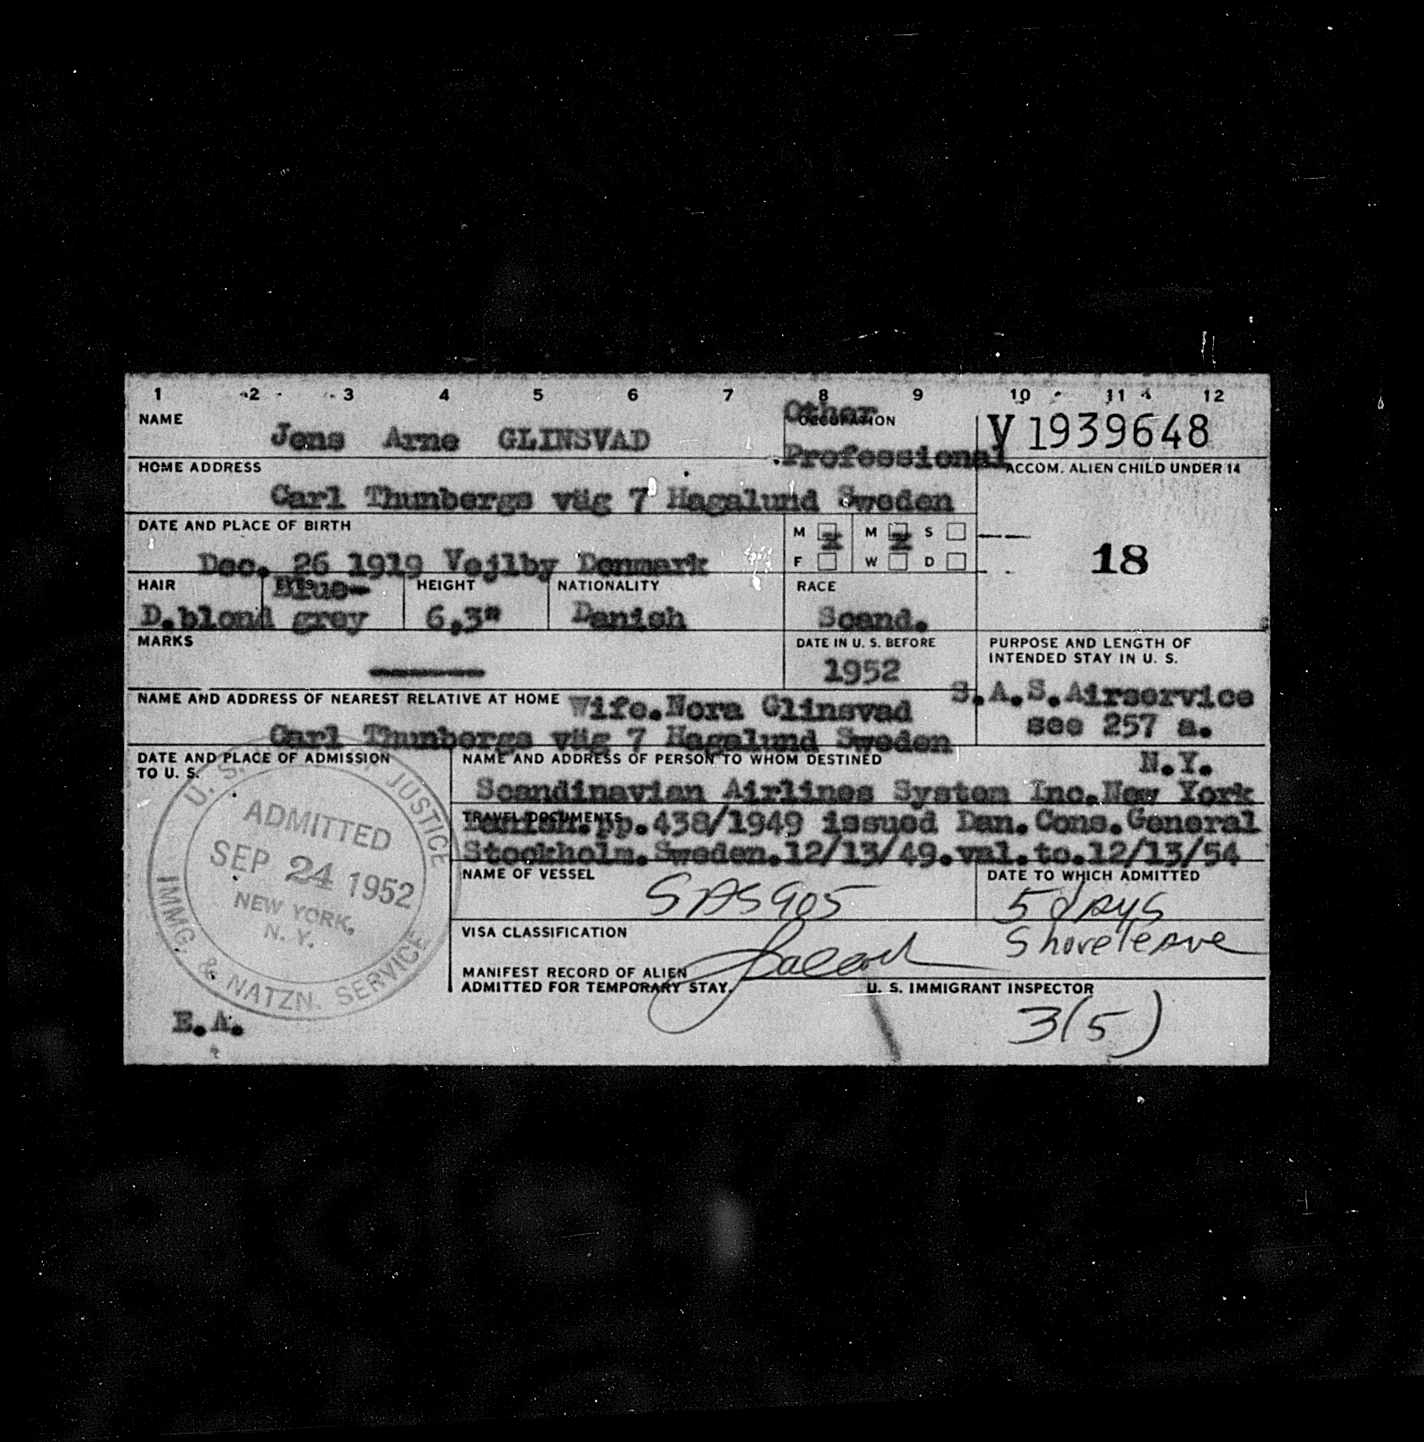 1 2 3 4 5 6 7 8 9 10 11 12
NAME
Jens Arne GLINSVAD
Other
OCCUPATION
Professional
V 1939648
HOME ADDRESS
ACCOM. ALIEN CHILD UNDER 14
Carl Thunbergs väg 7 Hagalund Sweden
DATE AND PLACE OF BIRTH
Dec. 26 1919 Vejlby Denmark
M x M x S
F W D
18
HAIR EYES HEIGHT NATIONALITY RACE
Blue-
D.blond grey 6,3" Danish Scand.
MARKS
DATE IN U. S. BEFORE
1952
PURPOSE AND LENGTH OF
INTENDED STAY IN U. S.
S.A.S.Airservice
see 257 a.
NAME AND ADDRESS OF NEAREST RELATIVE AT HOME
Wife.Nora Glinsvad
Carl Thunbergs väg 7 Hagalund Sweden
DATE AND PLACE OF ADMISSION
TO U. S.
NAME AND ADDRESS OF PERSON TO WHOM DESTINED
N.Y.
Scandinavian Airlines System Inc.New York
TRAVEL DOCUMENTS
Danish.pp.438/1949 issued Dan.Cons.General
Stockholm.Sweden.12/13/49.val.to.12/13/54
U. S. JUSTICE
ADMITTED
SEP 24 1952
NEW YORK,
N. Y.
IMMG. & NATZN. SERVICE
NAME OF VESSEL
SAS 905
DATE TO WHICH ADMITTED
5 days
Shoreleave
VISA CLASSIFICATION
MANIFEST RECORD OF ALIEN
ADMITTED FOR TEMPORARY STAY.
U. S. IMMIGRANT INSPECTOR
E.A.
3(5)